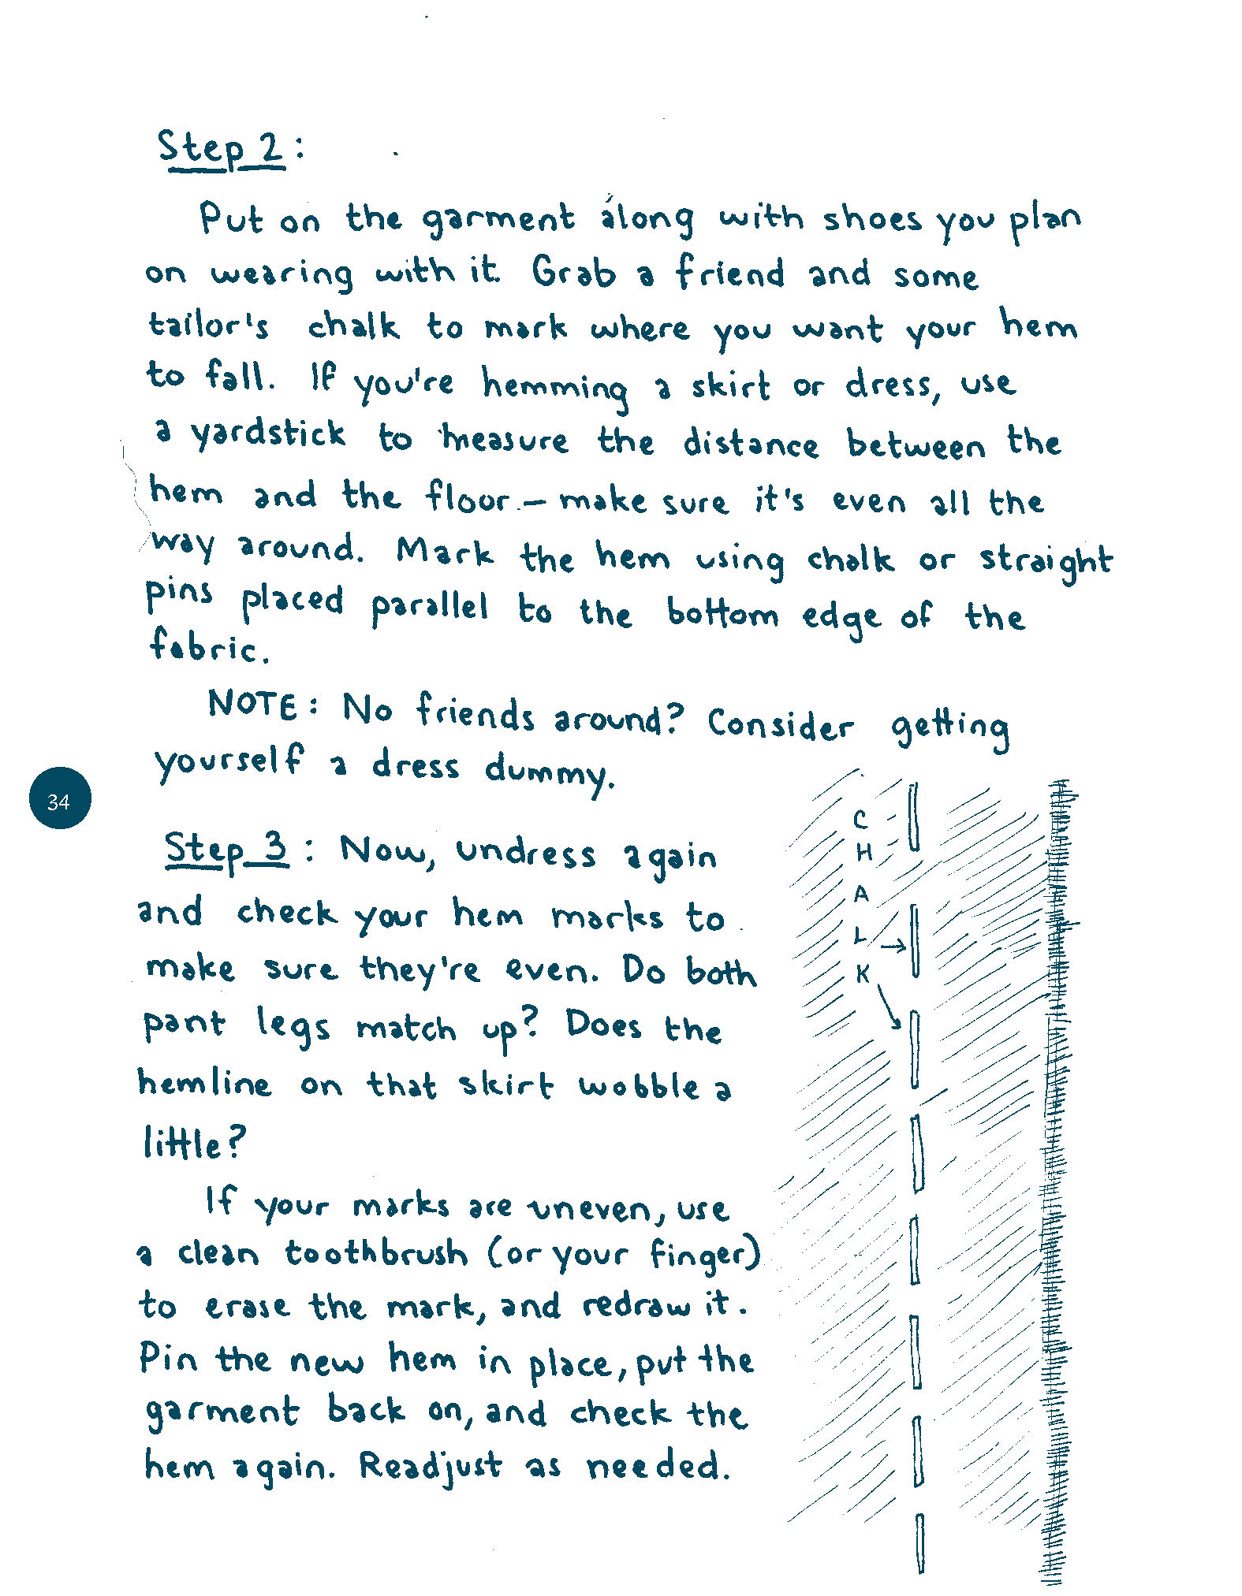 Step 2:
Put on the garment along with shoes you plan
on wearing with it. Grab a friend and some
tailor's chalk to mark where you want your hem
to fall. If you're hemming a skirt or dress, use
a yardstick to measure the distance between the
hem and the floor – make sure it's even all the
way around. Mark the hem using chalk or straight
pins placed parallel to the bottom edge of the
fabric.
NOTE: No friends around? Consider getting
yourself a dress dummy.
34
Step 3: Now, undress again
and check your hem marks to
make sure they're even. Do both
pant legs match up? Does the
hemline on that skirt wobble a
little?
If your marks are uneven, use
a clean toothbrush (or your finger)
to erase the mark, and redraw it.
Pin the new hem in place, put the
garment back on, and check the
hem again. Readjust as needed.
CHALK